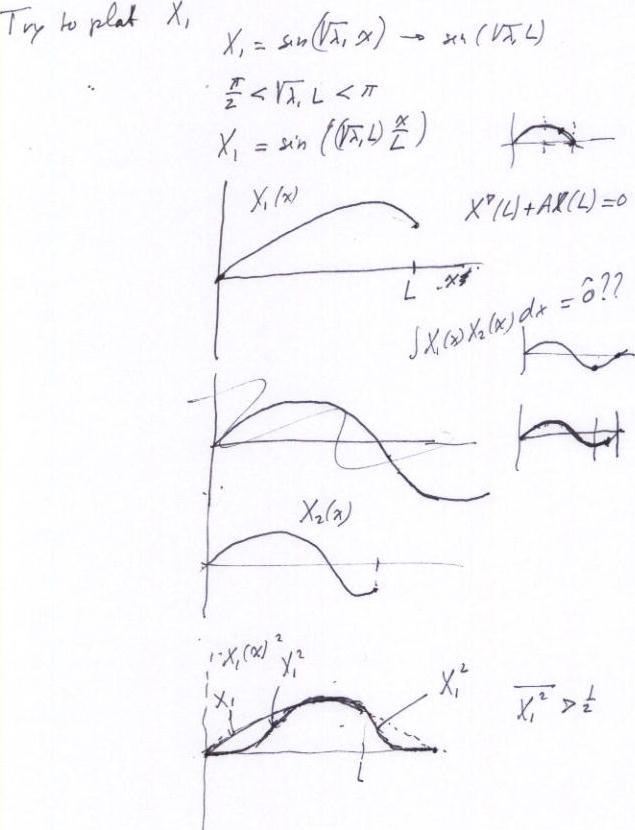 Try to plot X₁
X₁ = sin(√λ₁ x) → sin(√λ₁ L)
π/2 < √λ₁ L < π
X₁ = sin((√λ₁L) x/L)
X₁(x)
X'(L) + AX(L) = 0
L x
∫X₁(x)X₂(x)dx = 0??
X₂(x)
X₁(x)²
X₁ X₁²
X₁²
X₁² > 1/2
L